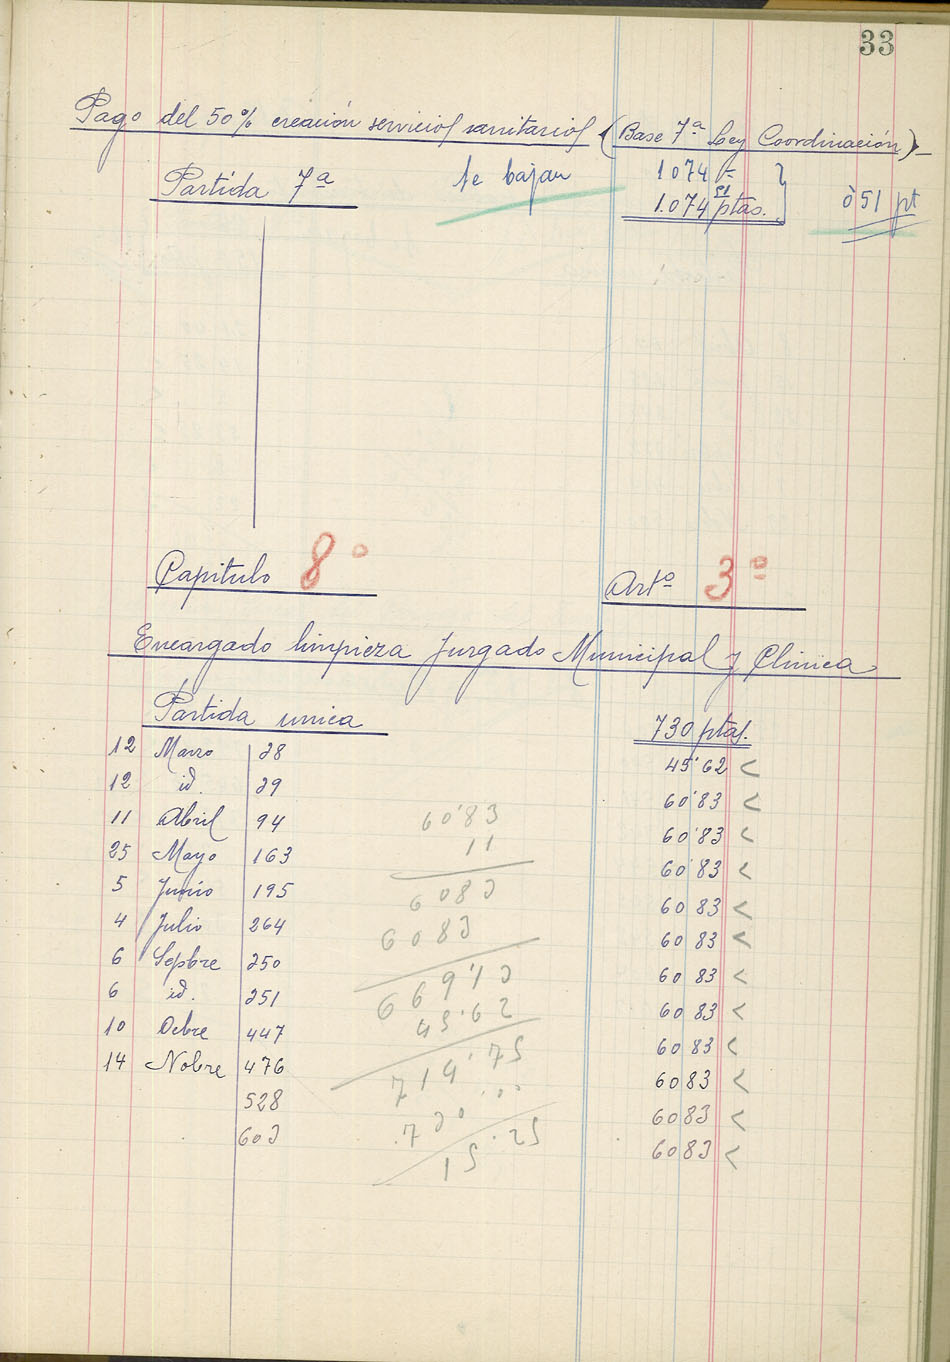 33
Pago del 50% creación servicios sanitarios (Base 7ª Ley Coordinación)
Partida 7ª se bajan 1074
1.074 51 ptas. 0'51 pt
Capitulo 8º Artº 3º
Encargado limpieza Jurgado Municipal y Clinica
Partida unica 730 ptas.
12 Marzo 28 45'62 <
12 id. 29 60'83 <
11 Abril 94 60'83 <
25 Mayo 163 60'83 <
5 Junio 195 60 83 <
4 Julio 264 60 83 <
6 Sepbre 250 60 83 <
6 id. 251 60 83 <
10 Ocbre 447 60 83 <
14 Nobre 476 60 83 <
528 60 83 <
603 60 83 <
60'83
11
6083
6083
669'13
45.62
714'75
730
15.25